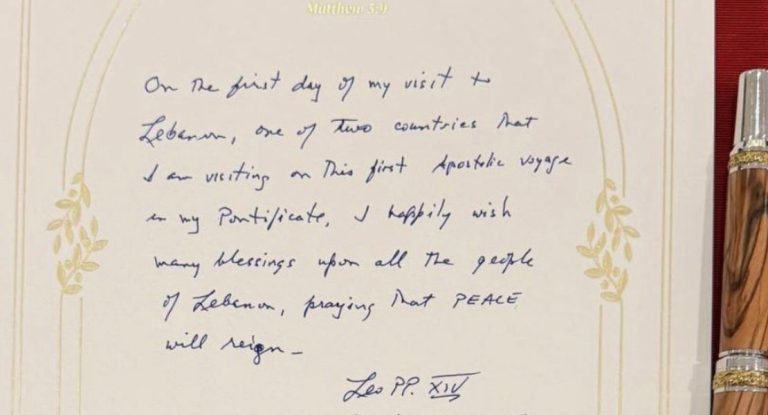 Matthew 5:9
On the first day of my visit to
Lebanon, one of two countries that
I am visiting on this first Apostolic voyage
in my Pontificate, I happily wish
many blessings upon all the people
of Lebanon, praying that PEACE
will reign –
Leo PP. XIV